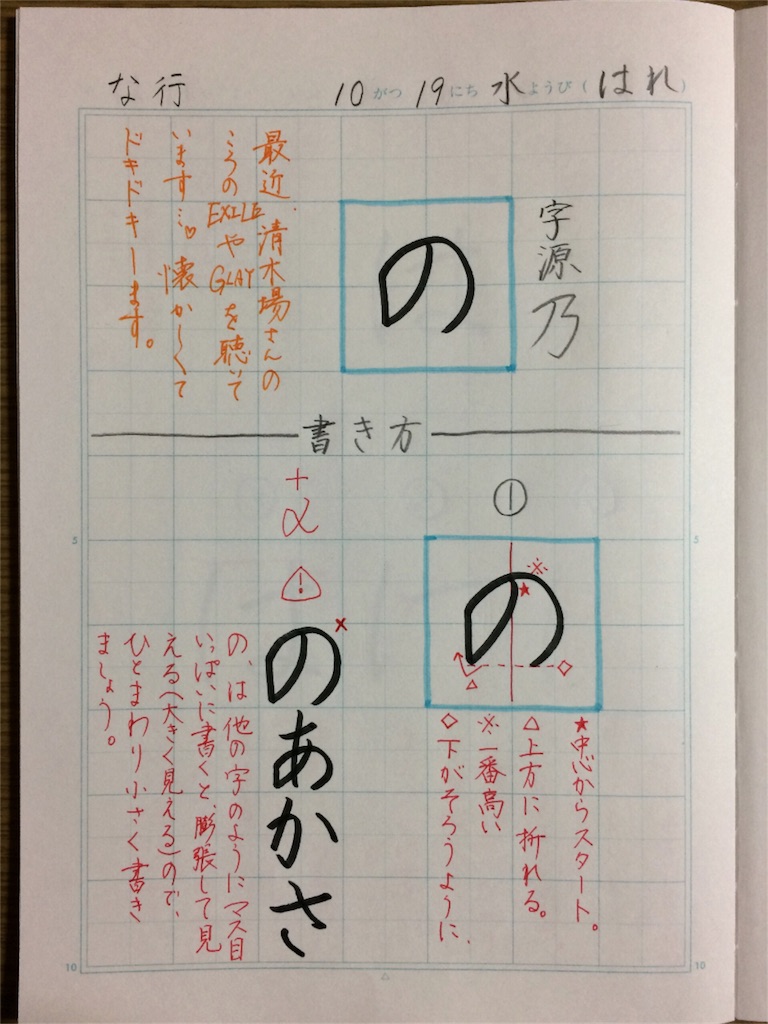 な行
10がつ19にち水ようび(はれ)
字源
乃
の
最近、清木場さんの
ころのEXILEや GLAYを聴いて
います…♡懐かしくて
ドキドキします。
書き方
①
の
※
★
△
◇
★中心からスタート。
△上方に折れる。
※一番高い
◇下がそろうように、
+α
!
の×
あ
か
さ
の、は他の字のようにマス目
いっぱいに書くと、膨張して見
える(大きく見える)ので、
ひとまわり小さく書き
ましょう。
5
5
10
10